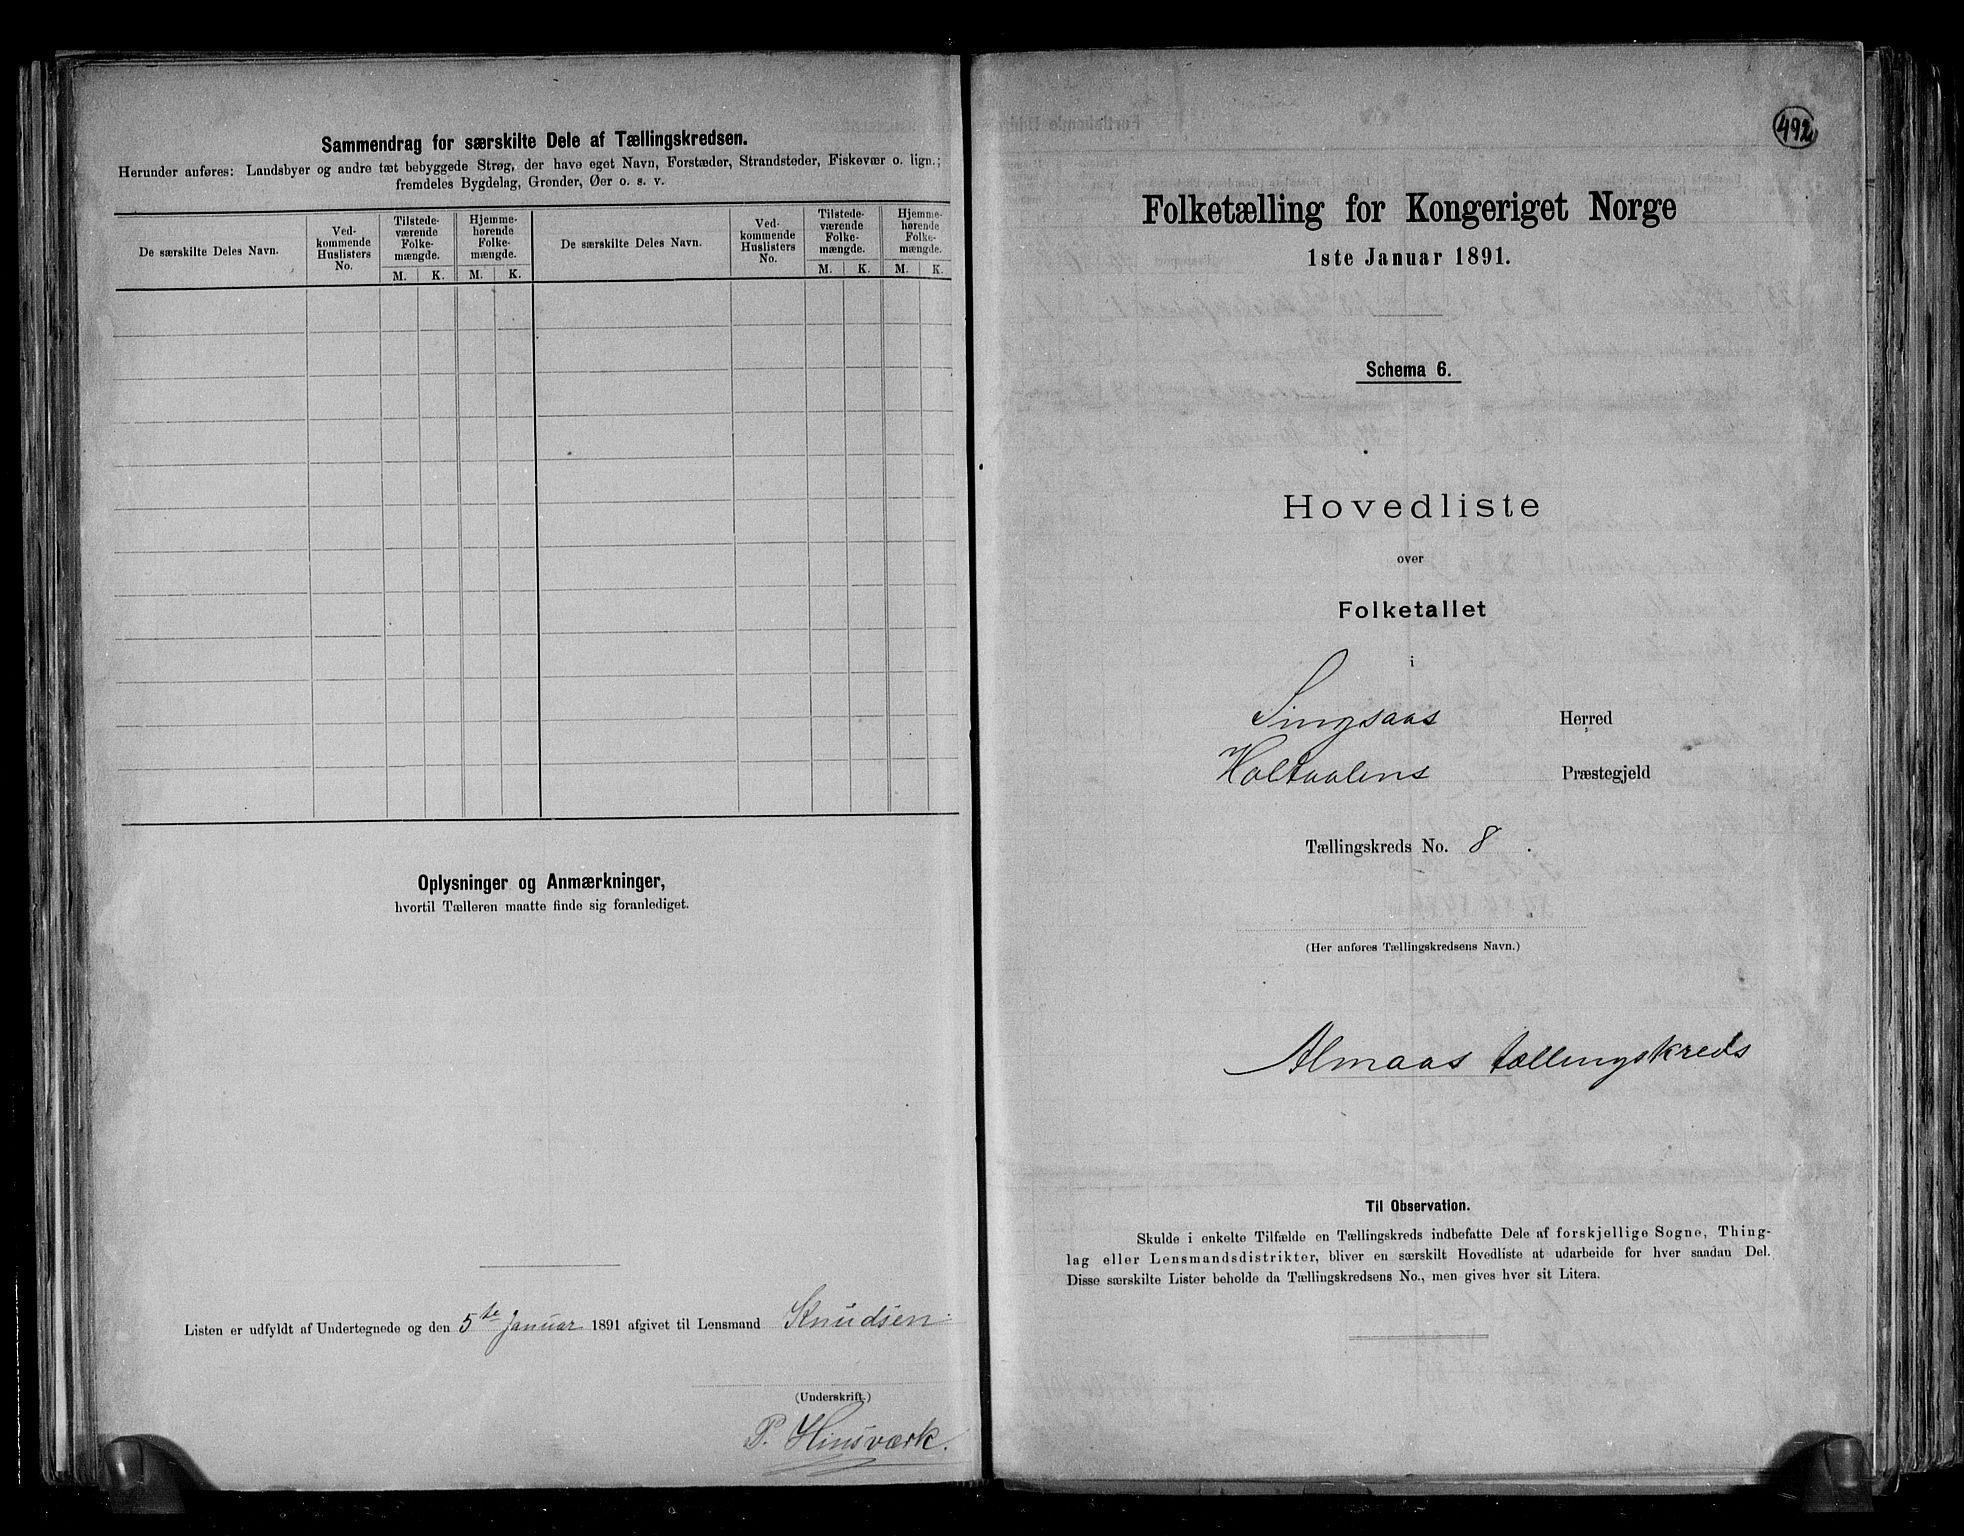 Sammendrag for særskilte Dele af Tællingskredsen.
Herunder anføres: Landsbyer og andre tæt bebyggede Strøg, der have eget Navn, Forstæder, Strandsteder, Fiskevær o. lign.;
fremdeles Bygdelag, Grender, Øer o. s. v.
De særskilte Deles Navn.
Ved-
kommende
Huslisters
No.
Tilstede-
værende
Folke-
mængde.
Hjemme-
hørende
Folke-
mængde.
De særskilte Deles Navn.
Ved-
kommende
Huslisters
No.
Tilstede-
værende
Folke-
mængde.
Hjemme-
hørende
Folke-
mængde.
M. K. M. K. M. K. M. K.
Oplysninger og Anmærkninger,
hvortil Tælleren maatte finde sig foranlediget.
Listen er udfyldt af Undertegnede og den 5te Januar 1891 afgivet til Lensmand Knudsen
(Underskrift.)
P. Hinsværk.
492
Folketælling for Kongeriget Norge
1ste Januar 1891.
Schema 6.
Hovedliste
over
Folketallet
i
Singsaas Herred
Holtaalens Præstegjeld
Tællingskreds No. 8.
(Her anføres Tællingskredsens Navn.)
Almaas tællingskreds
Til Observation.
Skulde i enkelte Tilfælde en Tællingskreds indbefatte Dele af forskjellige Sogne, Thing-
lag eller Lensmandsdistrikter, bliver en særskilt Hovedliste at udarbeide for hver saadan Del.
Disse særskilte Lister beholde da Tællingskredsens No., men gives hver sit Litera.